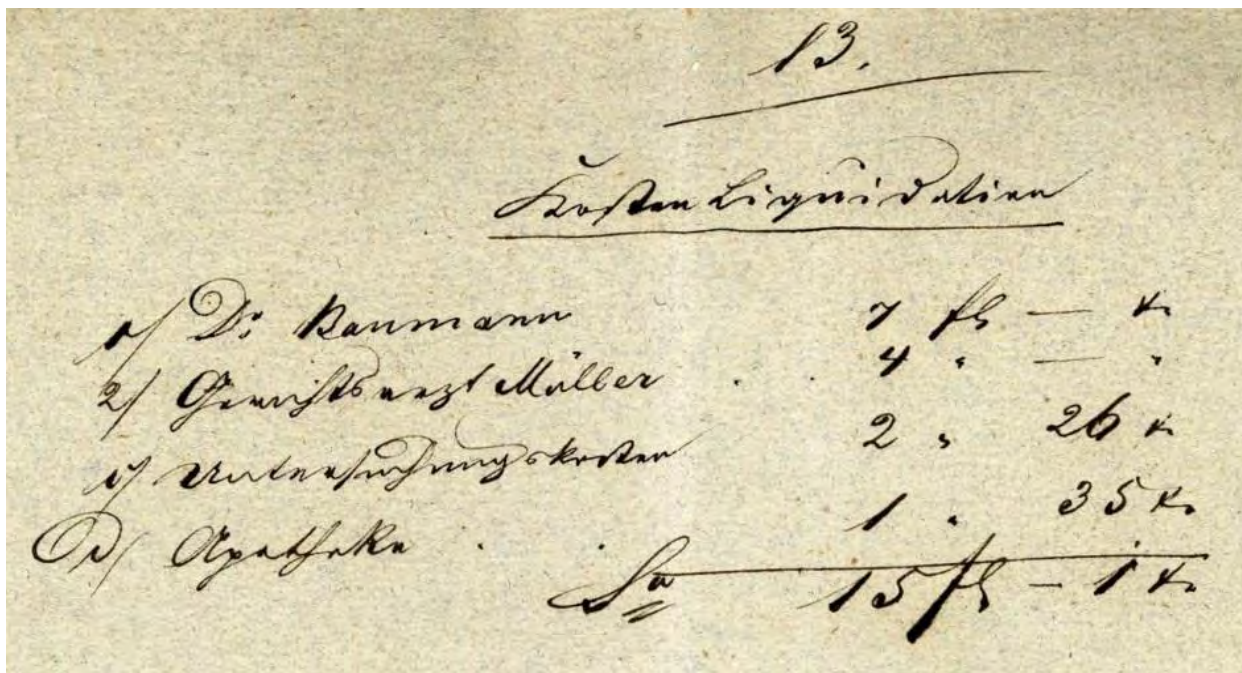 13.
Kosten Liquidation
a/ Dr Baumann 7 fl — kr
2/ Gerichtsarzt Müller . . 4 " — "
c/ Untersuchungskosten 2 " 26 kr
d/ Apotheke . . 1 " 35 kr
Sa 15 fl — 1 kr